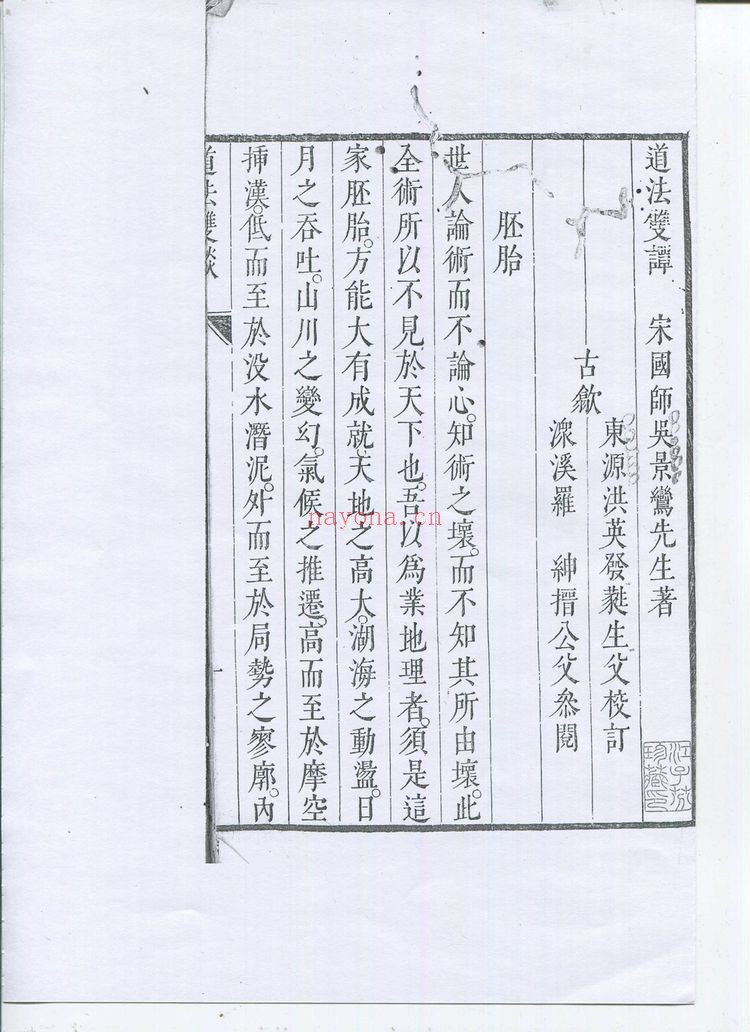 道法雙譚　宋國師吳景鸞先生著
古歙
東源洪英發蕤生父校訂
潨溪羅　紳搢公父叅閱
胚胎
世人論術而不論心。知術之壞。而不知其所由壞。此
全術所以不見於天下也。吾以爲業地理者。須是這
家胚胎。方能大有成就。天地之高大。湖海之動盪。日
月之吞吐。山川之變幻。氣候之推遷。高而至於摩空
挿漢。低而至於没水潛泥。外而至於局勢之寥廓。內
道法雙談
nayona.cn